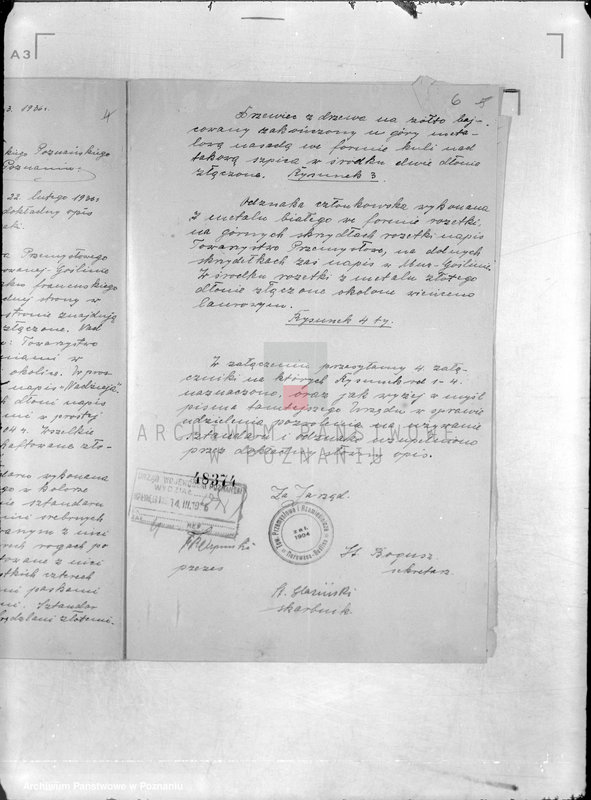 A3
3. 1936r.
4
kiego Poznańskiego
Poznaniu.
22 lutego 1936r
dokładny opis
Przemysłowego
Goślinie
strony w
stronie znajdują
złączone. Nad
: Towarzystwo
w
okolice. W pros-
napis "Nadzieja"
dłoni napis
w prostej
1904. Wszelkie
haftowane zło-
wykonana
w kolorze
sztandaru
nici srebrnych
z nici
rogach po
z nici
czterech
paskami
Sztandar
złotemi.
6
Drzewiec z drzewa na żółto bej-
cowany zakończony u góry meta-
lową nasadą we formie kuli nad
takową szpica w środku dwie dłonie
złączone. Rysunek 3.
Odznaka członkowska wykonana
z metalu białego we formie rozetki,
na górnych skrzydłach rozetki napis
Towarzystwo Przemysłowe, na dolnych
skrzydełkach zaś napis w Mur-Goślinie.
W środku rozetki z metalu złotego
dłonie złączone okolone wieńcem
laurowym.
Rysunek 4 ty.
W załączeniu przesyłamy 4. załą-
czniki na których Rysunek od 1-4.
naznaczono, oraz jak wyżej w myśl
pisma tamtejszego Urzędu w sprawie
udzielenia pozwolenia na używanie
sztandaru i odznaki uzupełniono
przez dokładny słowny opis.
ARCHIWUM PAŃSTWOWE
W POZNANIU
48374
URZĄD WOJEWÓDZKI POZNAŃSKI
WYDZIAŁ
14.III.1936
Za Zarząd.
Tow. Przemysłowe i Rzemieślnicze
zał.
1904
Murowana-Goślina
prezes
St. Bogusz
sekretarz
skarbnik.
Archiwum Państwowe w Poznaniu